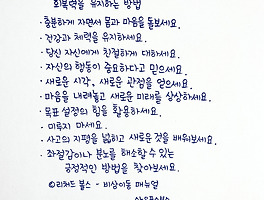 회복력을 유지하는 방법
·충분하게 자면서 몸과 마음을 돌보세요.
·건강과 체력을 유지하세요.
·당신 자신에게 친절하게 대하세요.
·자신의 행동이 중요하다고 믿으세요.
·새로운 시각, 새로운 관점을 얻으세요.
·마음을 내려놓고 새로운 미래를 상상하세요.
·목표 설정의 힘을 활용하세요.
·미루지 마세요.
·사고의 지평을 넓히고 새로운 것을 배워보세요.
·좌절감이나 분노를 해소할 수 있는
긍정적인 방법을 찾아보세요.
©리처드 볼스 - 비상이동 매뉴얼